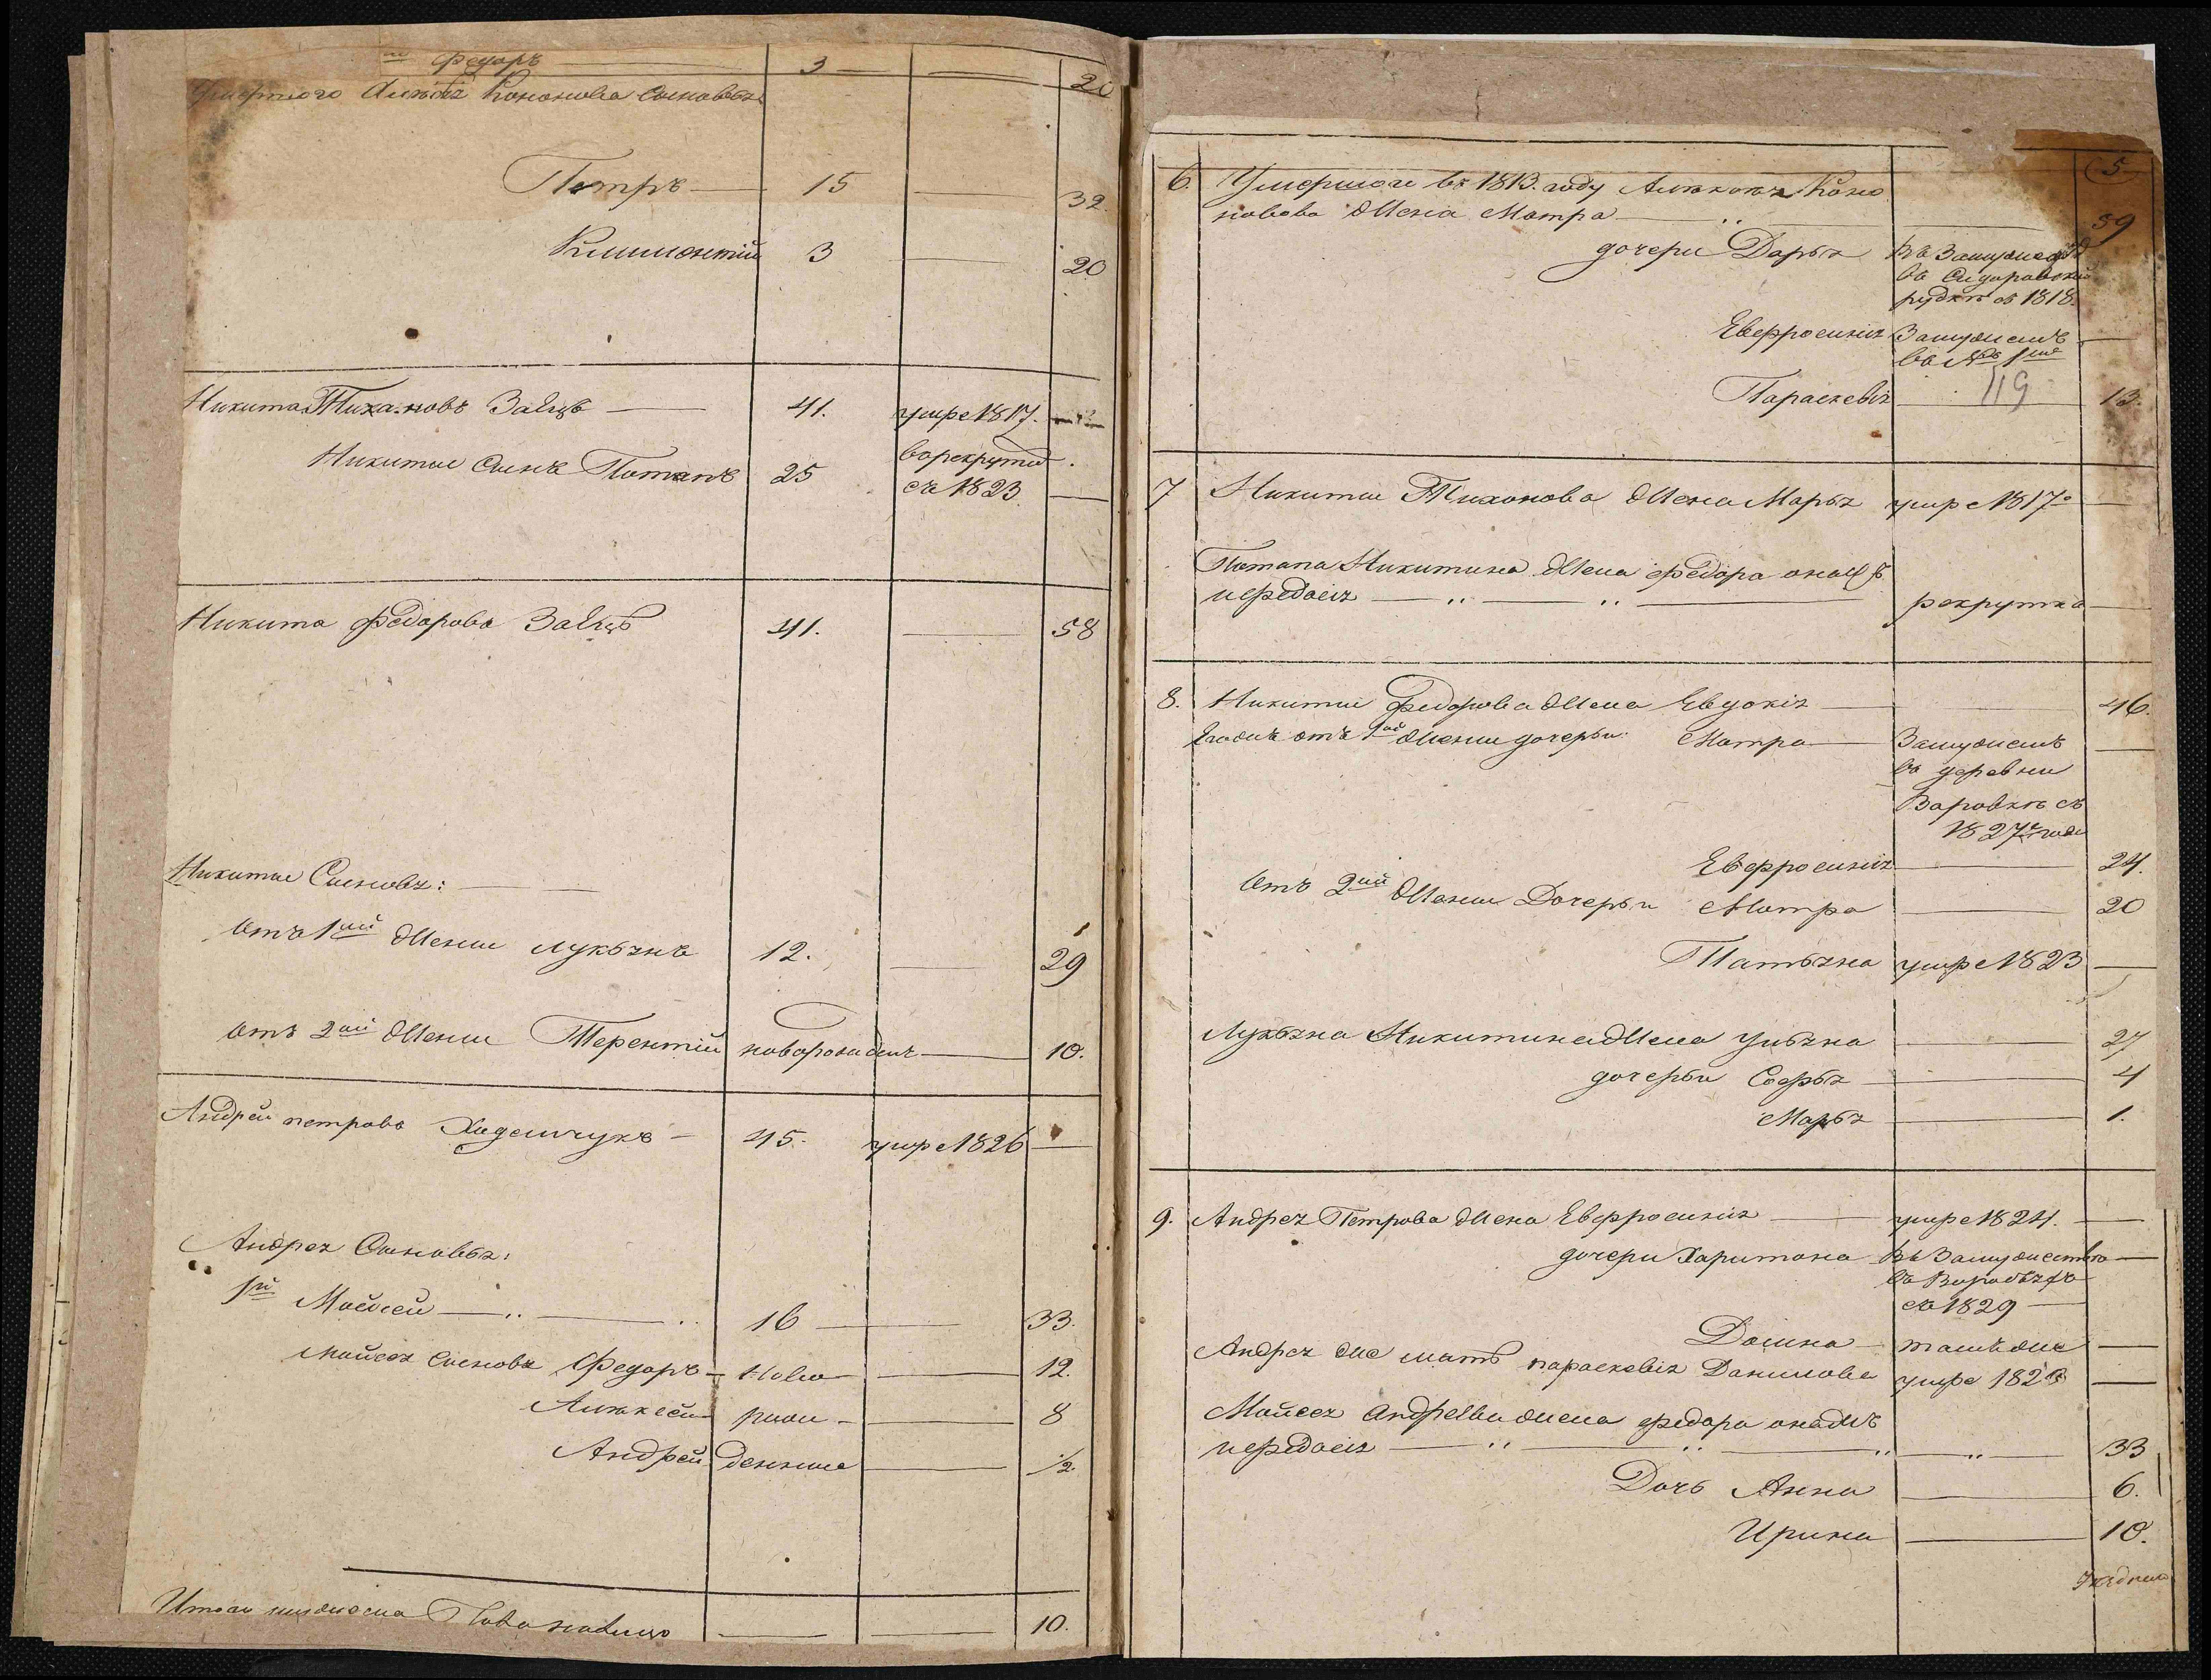 Федоръ 3 20
Умершого Кононова Сыновья
Петръ 15 32.
Климонтій 3 20
Никита Тихановъ Заецъ 41. умре 1817.
Никиты Сынъ Потапъ 25 въ рекруты
съ 1823
Никита Федоровъ Заецъ 41. 58
Никиты Сыновья:
Отъ 1ой Жены Лукьянъ 12. 29
Отъ 2ой Жены Терентій новорожденъ 10.
Андрей Петровъ 45. умре 1826
Андрея Сыновья:
1й Мойсей 16 33.
Мойсея Сыновья Федоръ Ново 12.
Алексей рож 8
Андрей денные 1/2.
Итого мужеска Пола наличо 10.
5
6. Умершого въ 1813. году Коно
нова Жена Мотра 59
дочери Дарья въ Замужестве
въ Сидоравской
рудне съ 1818.
Евфросинія Замужемъ
въ № 1ме
Параскевія 119 13.
7 Никиты Тихонова Жена Марья умре 1817
Потапа Никитина Жена Федора онаяжъ
и Федосія рекрутка
8. Никиты Федорова Жена Евдокія 46.
отъ 1ой Жены дочерьи: Мотра Замужемъ
въ деревни
Воровке съ
1827 года
Евфросинія 24.
Отъ 2ой Жены Дочерьи Мотра 20
Татьяна умре 1823
Лукьяна Никитина Жена Ульяна 27
дочерьи Софья 4
Марья 1.
9. Андрея Петрова Жена Евфросинія умре 1824.
дочери Харитона въ Замужество
съ 1829
Домна тамъже
Андрея же мать Параскевія Данилова умре
Мойсея Андреева жена Федора онажъ
и Федосія 33
Дочь Анна 6.
Ирина 10.